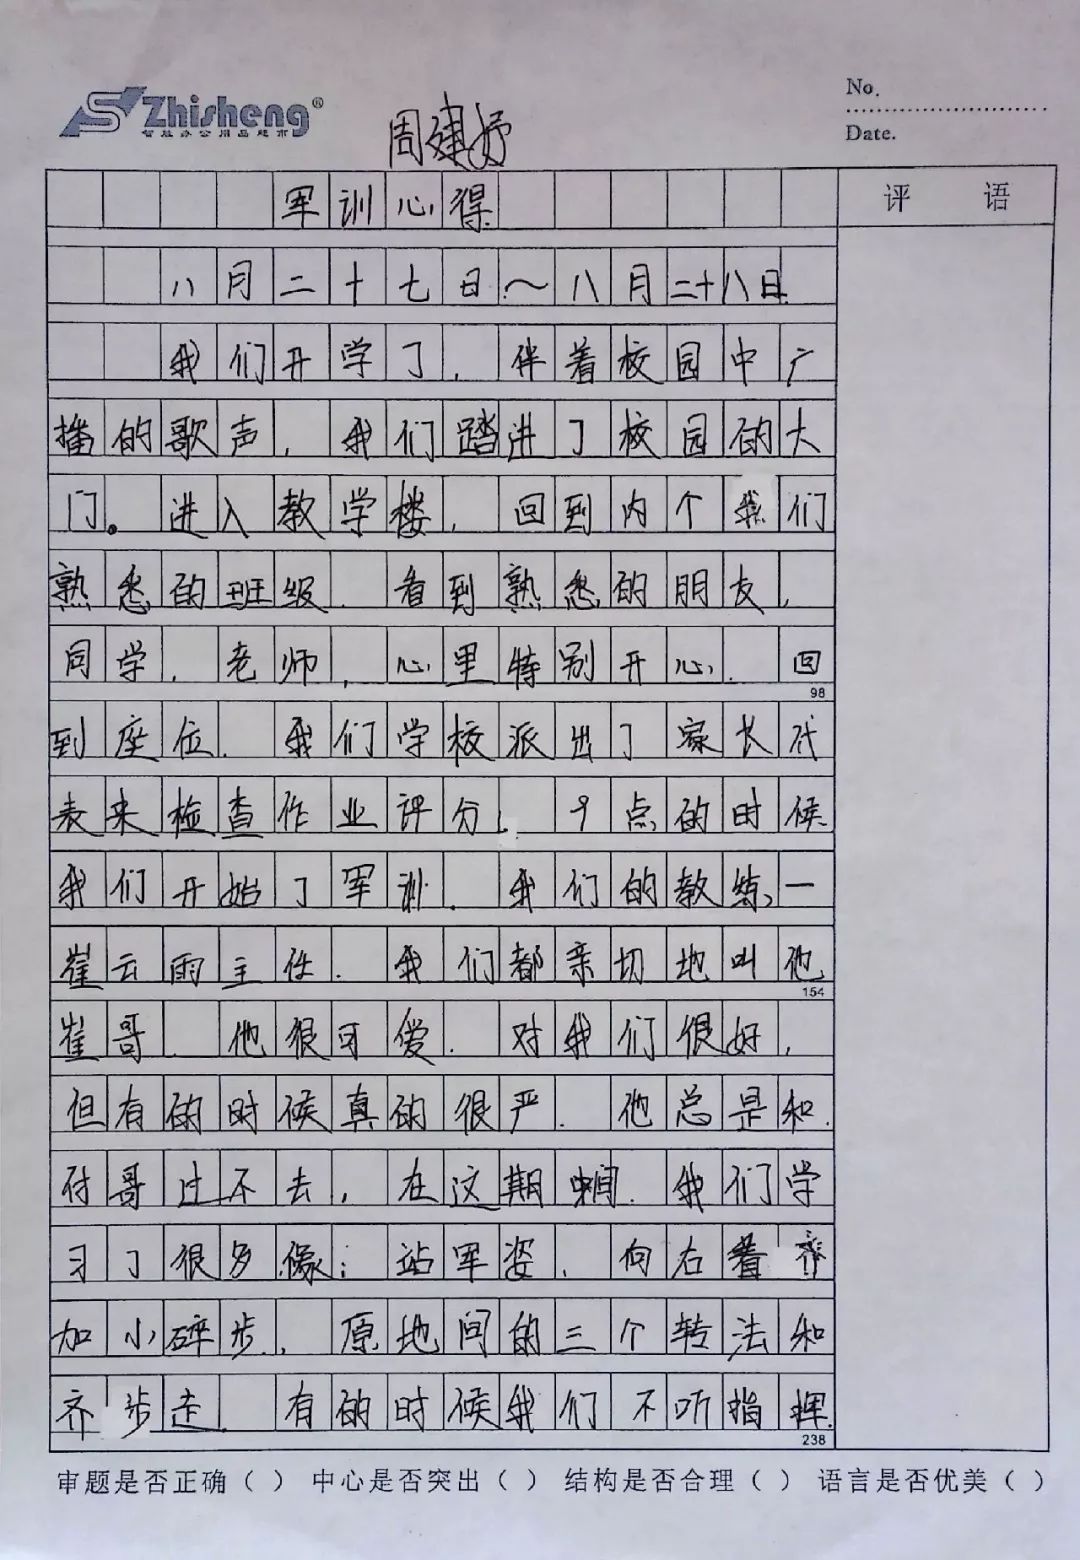 Zhisheng®
智胜办公用品超市
No.
Date.
周建妤
军训心得
评 语
八月二十七日～八月二十八日
我们开学了,伴着校园中广
播的歌声,我们踏进了校园的大
门。进入教学楼,回到内个我们
熟悉的班级.看到熟悉的朋友,
同学,老师,心里特别开心.回
98
到座位.我们学校派出了家长代
表来检查作业评分.9点的时候
我们开始了军训.我们的教练、一
崔云雨主任.我们都亲切地叫他
154
崔哥.他很可爱.对我们很好,
但有的时候真的很严.他总是和
付哥过不去,在这期间.我们学
习了很多,像:站军姿,向右看齐
加小碎步,原地间的三个转法和
齐步走.有的时候我们不听指挥.
238
审题是否正确（ ） 中心是否突出（ ） 结构是否合理（ ） 语言是否优美（ ）